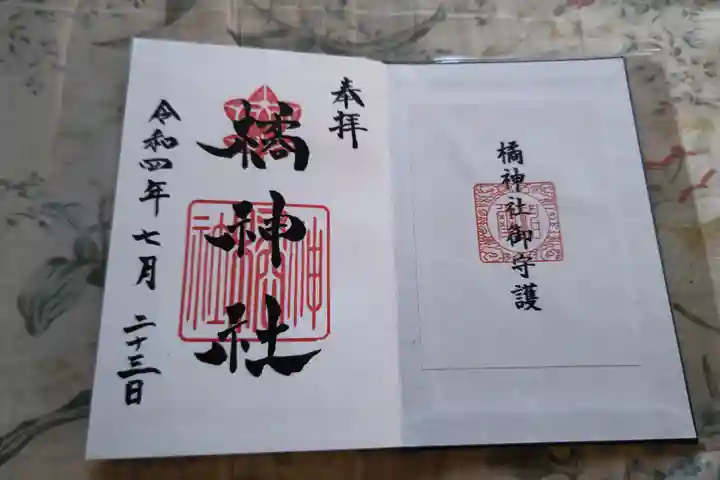 橘神社御守護
奉拝
橘神社
令和四年七月二十三日